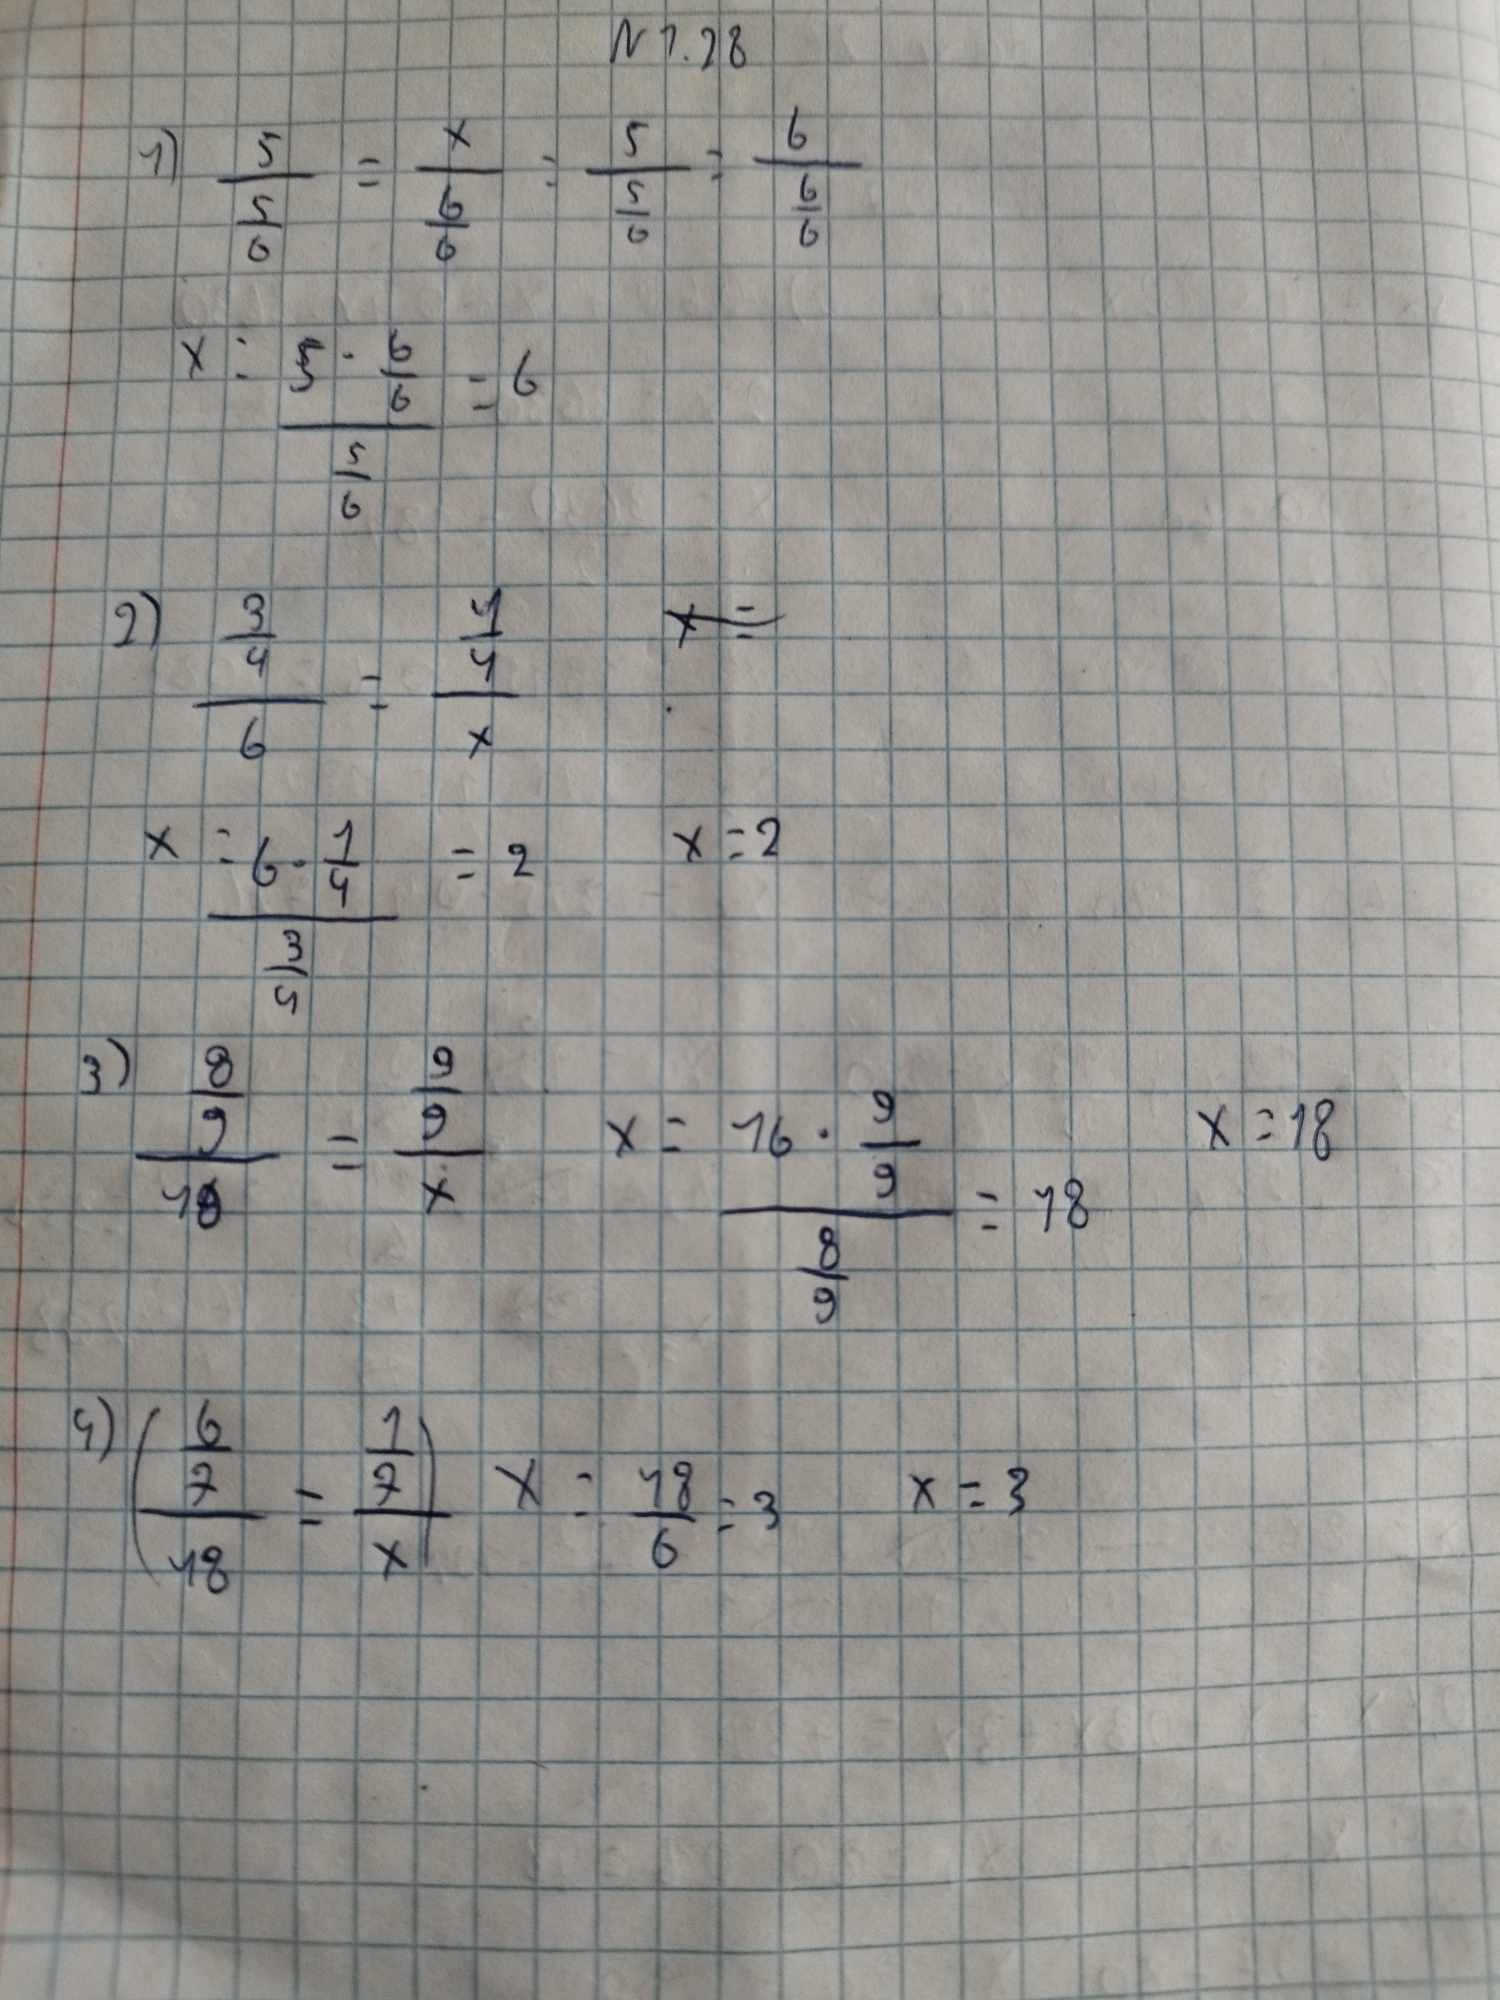 N 1.28
1) 5/(5/6) = x/(6/6) = 5/(5/6) = 6/(6/6)
x = (5 · 6/6)/(5/6) = 6
2) (3/4)/6 = (1/4)/x x =
x = (6 · 1/4)/(3/4) = 2 x = 2
3) (8/9)/16 = (9/9)/x x = (16 · 9/9)/(8/9) = 18 x = 18
4) ((6/7)/18 = (1/7)/x) x = 18/6 = 3 x = 3